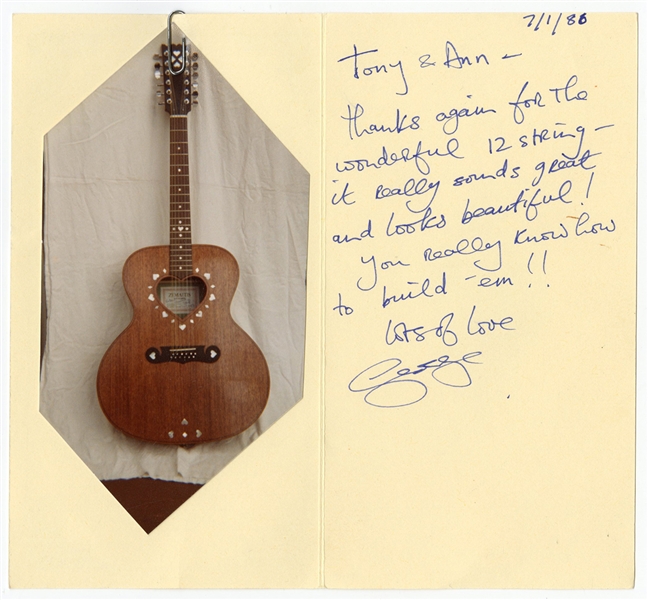 7/1/86
Tony & Ann –
thanks again for the
wonderful 12 string –
it really sounds great
and looks beautiful!
you really know how
to build 'em!!
lots of love
George
ZEMAITIS